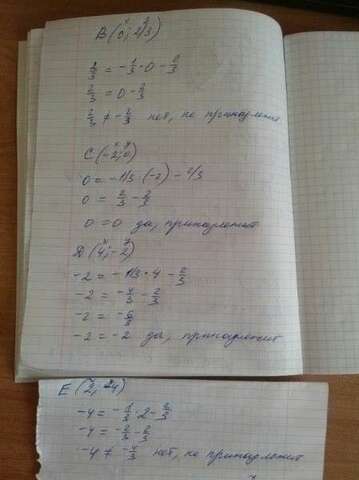 x y
B (0; 2/3)
2/3 = -1/3 · 0 - 2/3
2/3 = 0 - 2/3
2/3 ≠ -2/3 нет, не принадлежит
x y
C (-2; 0)
0 = -1/3 (-2) - 2/3
0 = 2/3 - 2/3
0 = 0 да, принадлежит
x y
D (4; -2)
-2 = -1/3 · 4 - 2/3
-2 = -4/3 - 2/3
-2 = -6/3
-2 = -2 да, принадлежит
E (2; -4)
-4 = -1/3 · 2 - 2/3
-4 = -2/3 - 2/3
-4 ≠ -4/3 нет, не принадлежит